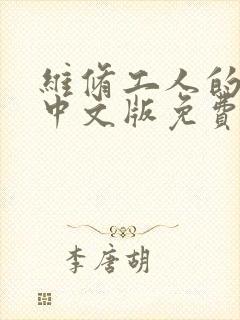 維脩工人的
中文版免費
李唐胡